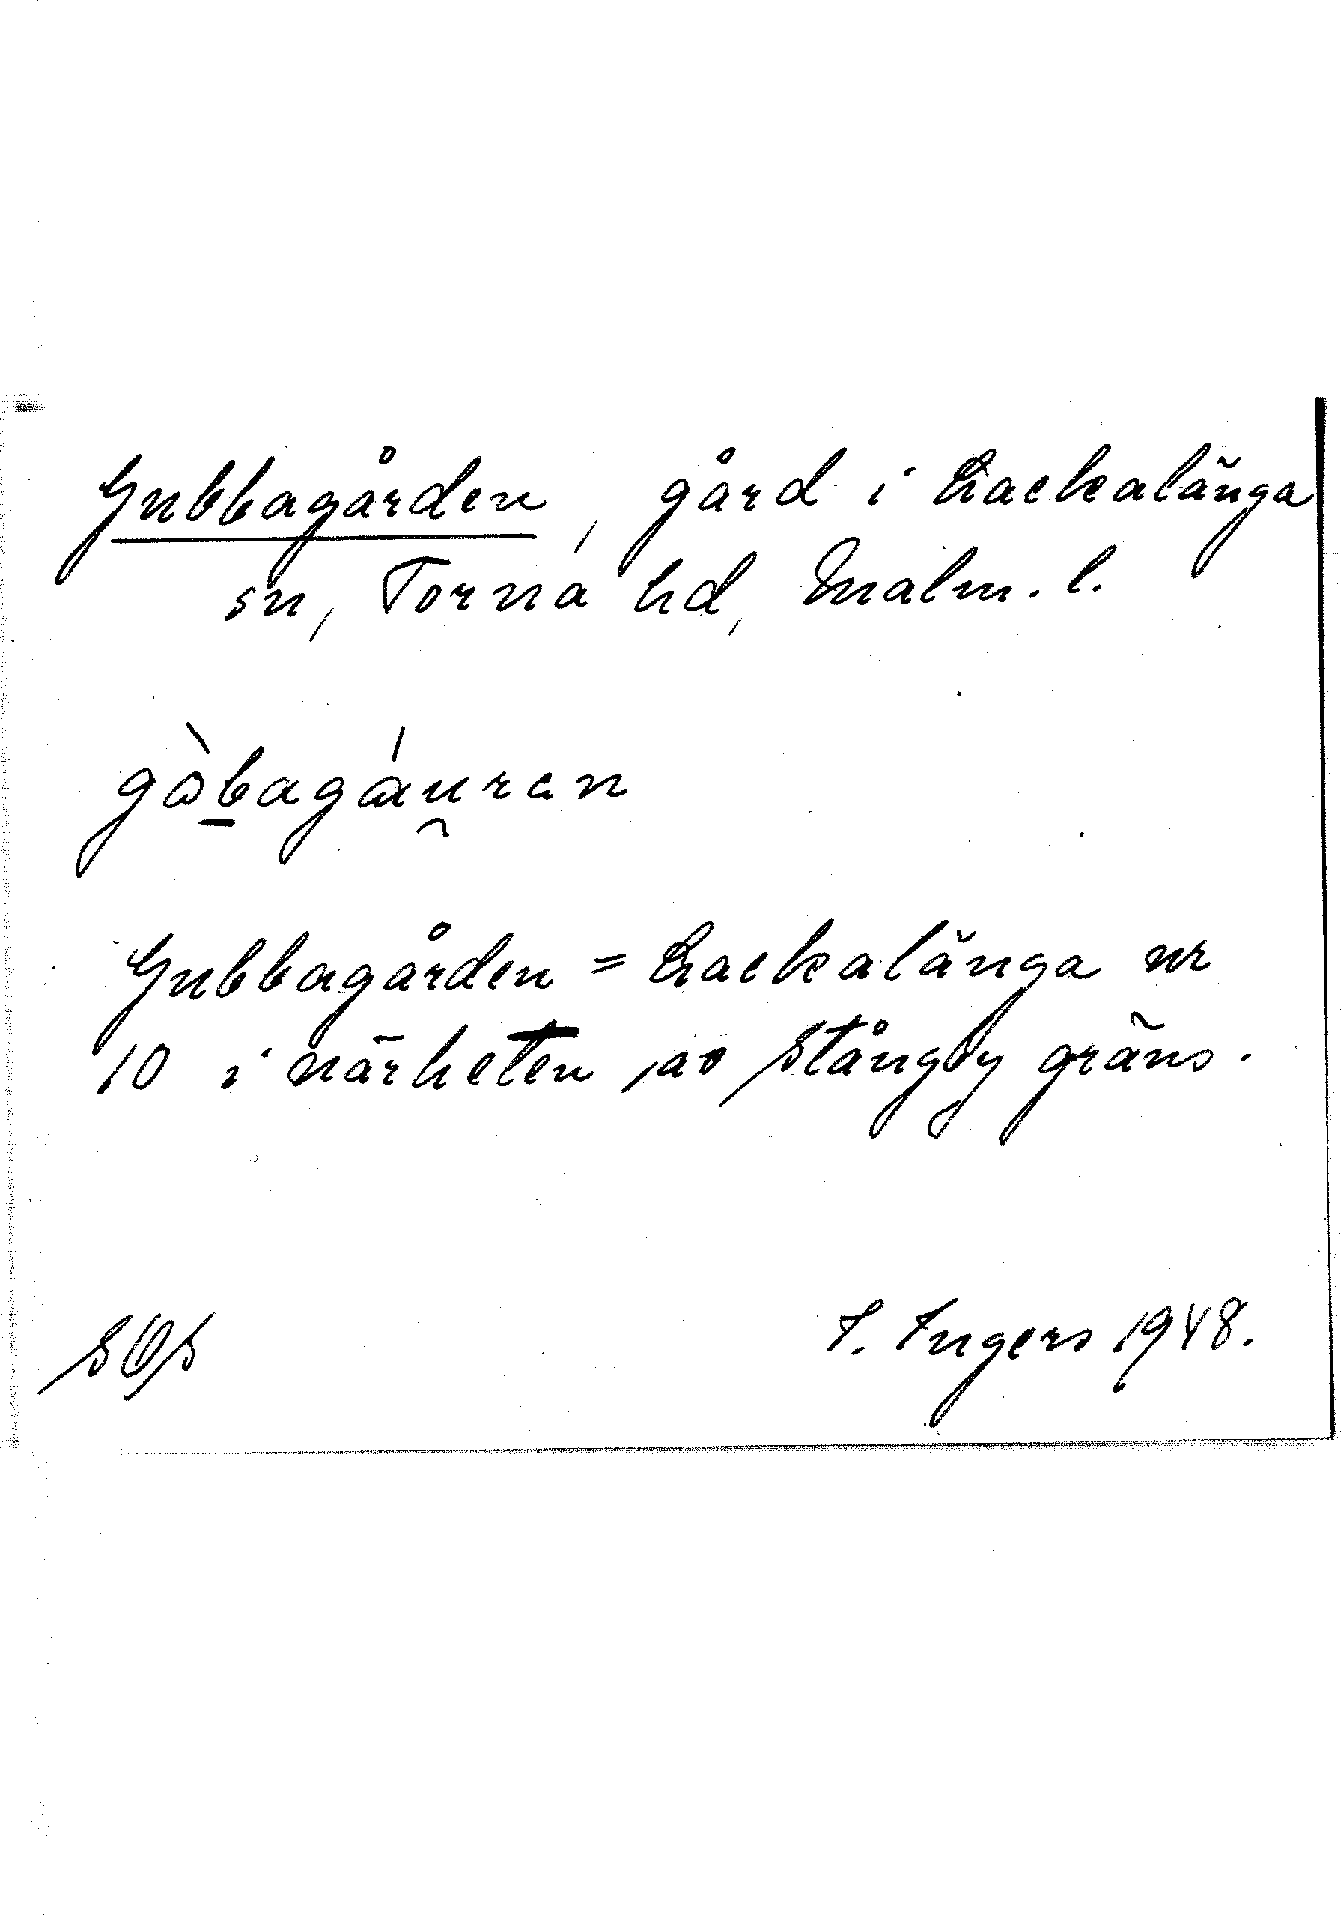 Gubbagården, gård i Lackalänga
sn, Torna hd, Malm. l.
gòbagáuren
Gubbagården = Lackalänga nr
10 i närheten av Stångby gräns.
SOS
I. Ingers 1948.